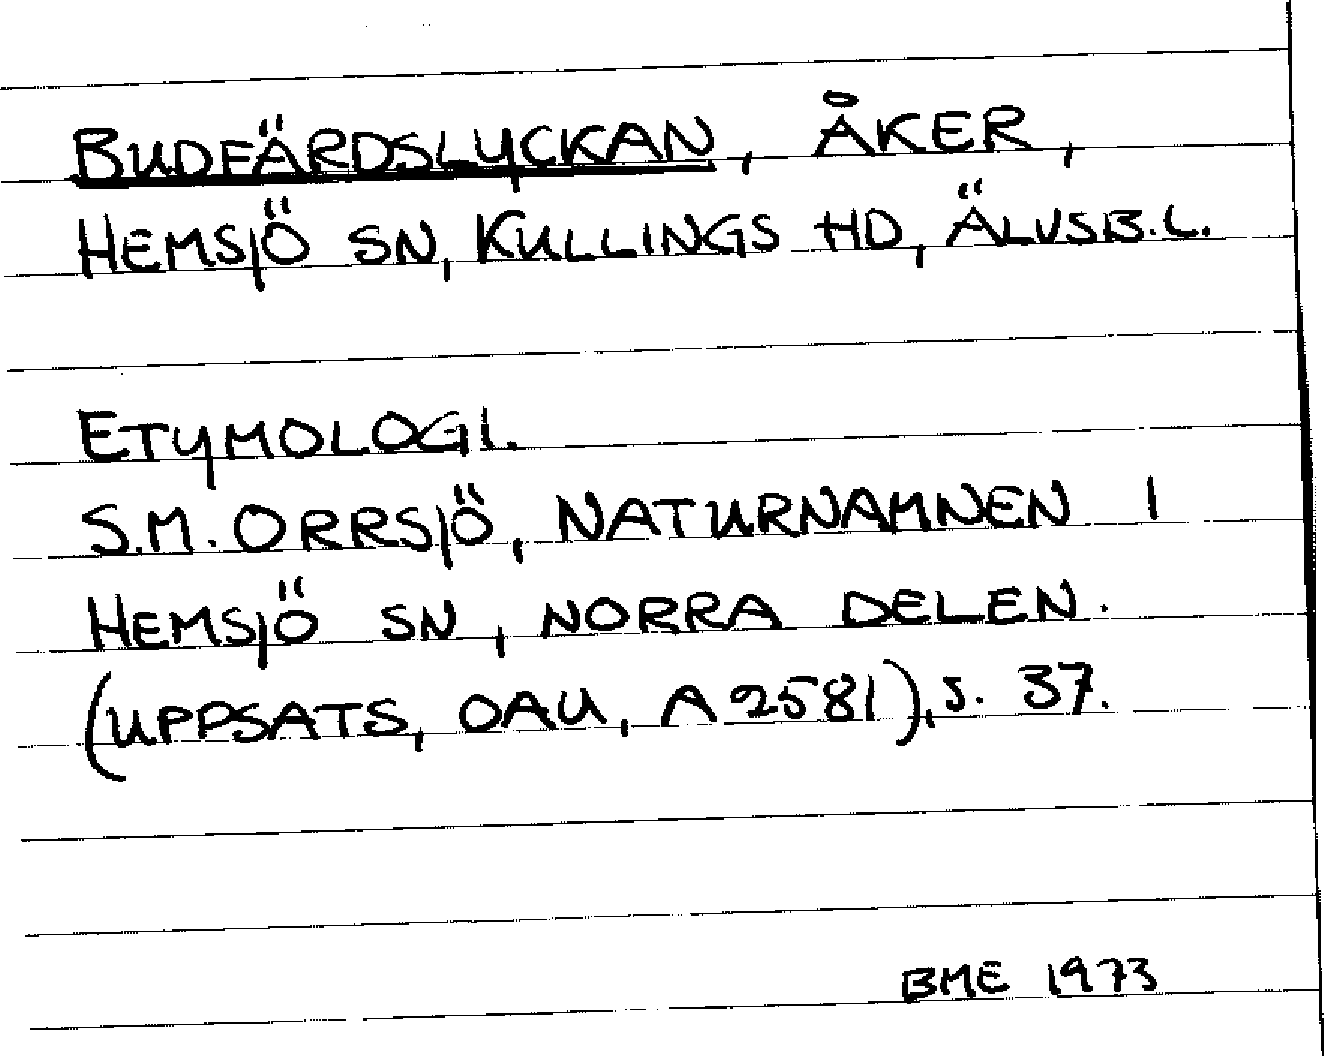 BUDFÄRDSLYCKAN, ÅKER,
HEMSJÖ SN, KULLINGS HD, ÄLVSB.L.
ETYMOLOGI.
S.M. ORRSJÖ, NATURNAMNEN I
HEMSJÖ SN, NORRA DELEN.
(UPPSATS, OAU, A 2581), s. 37.
BME 1973